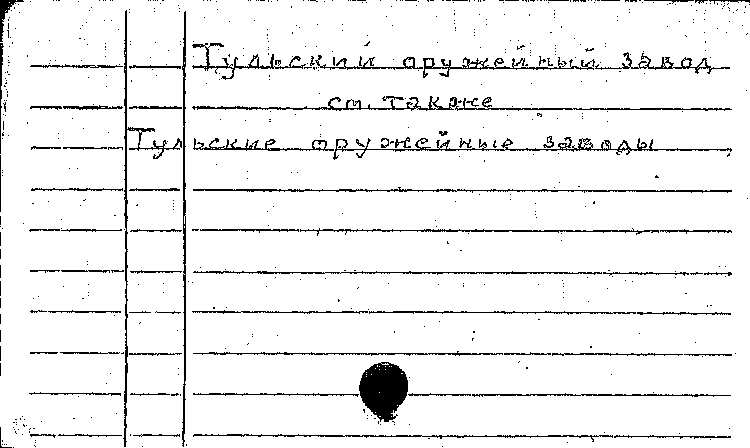 Тульский оружейный завод
см. также
Тульские оружейные заводы